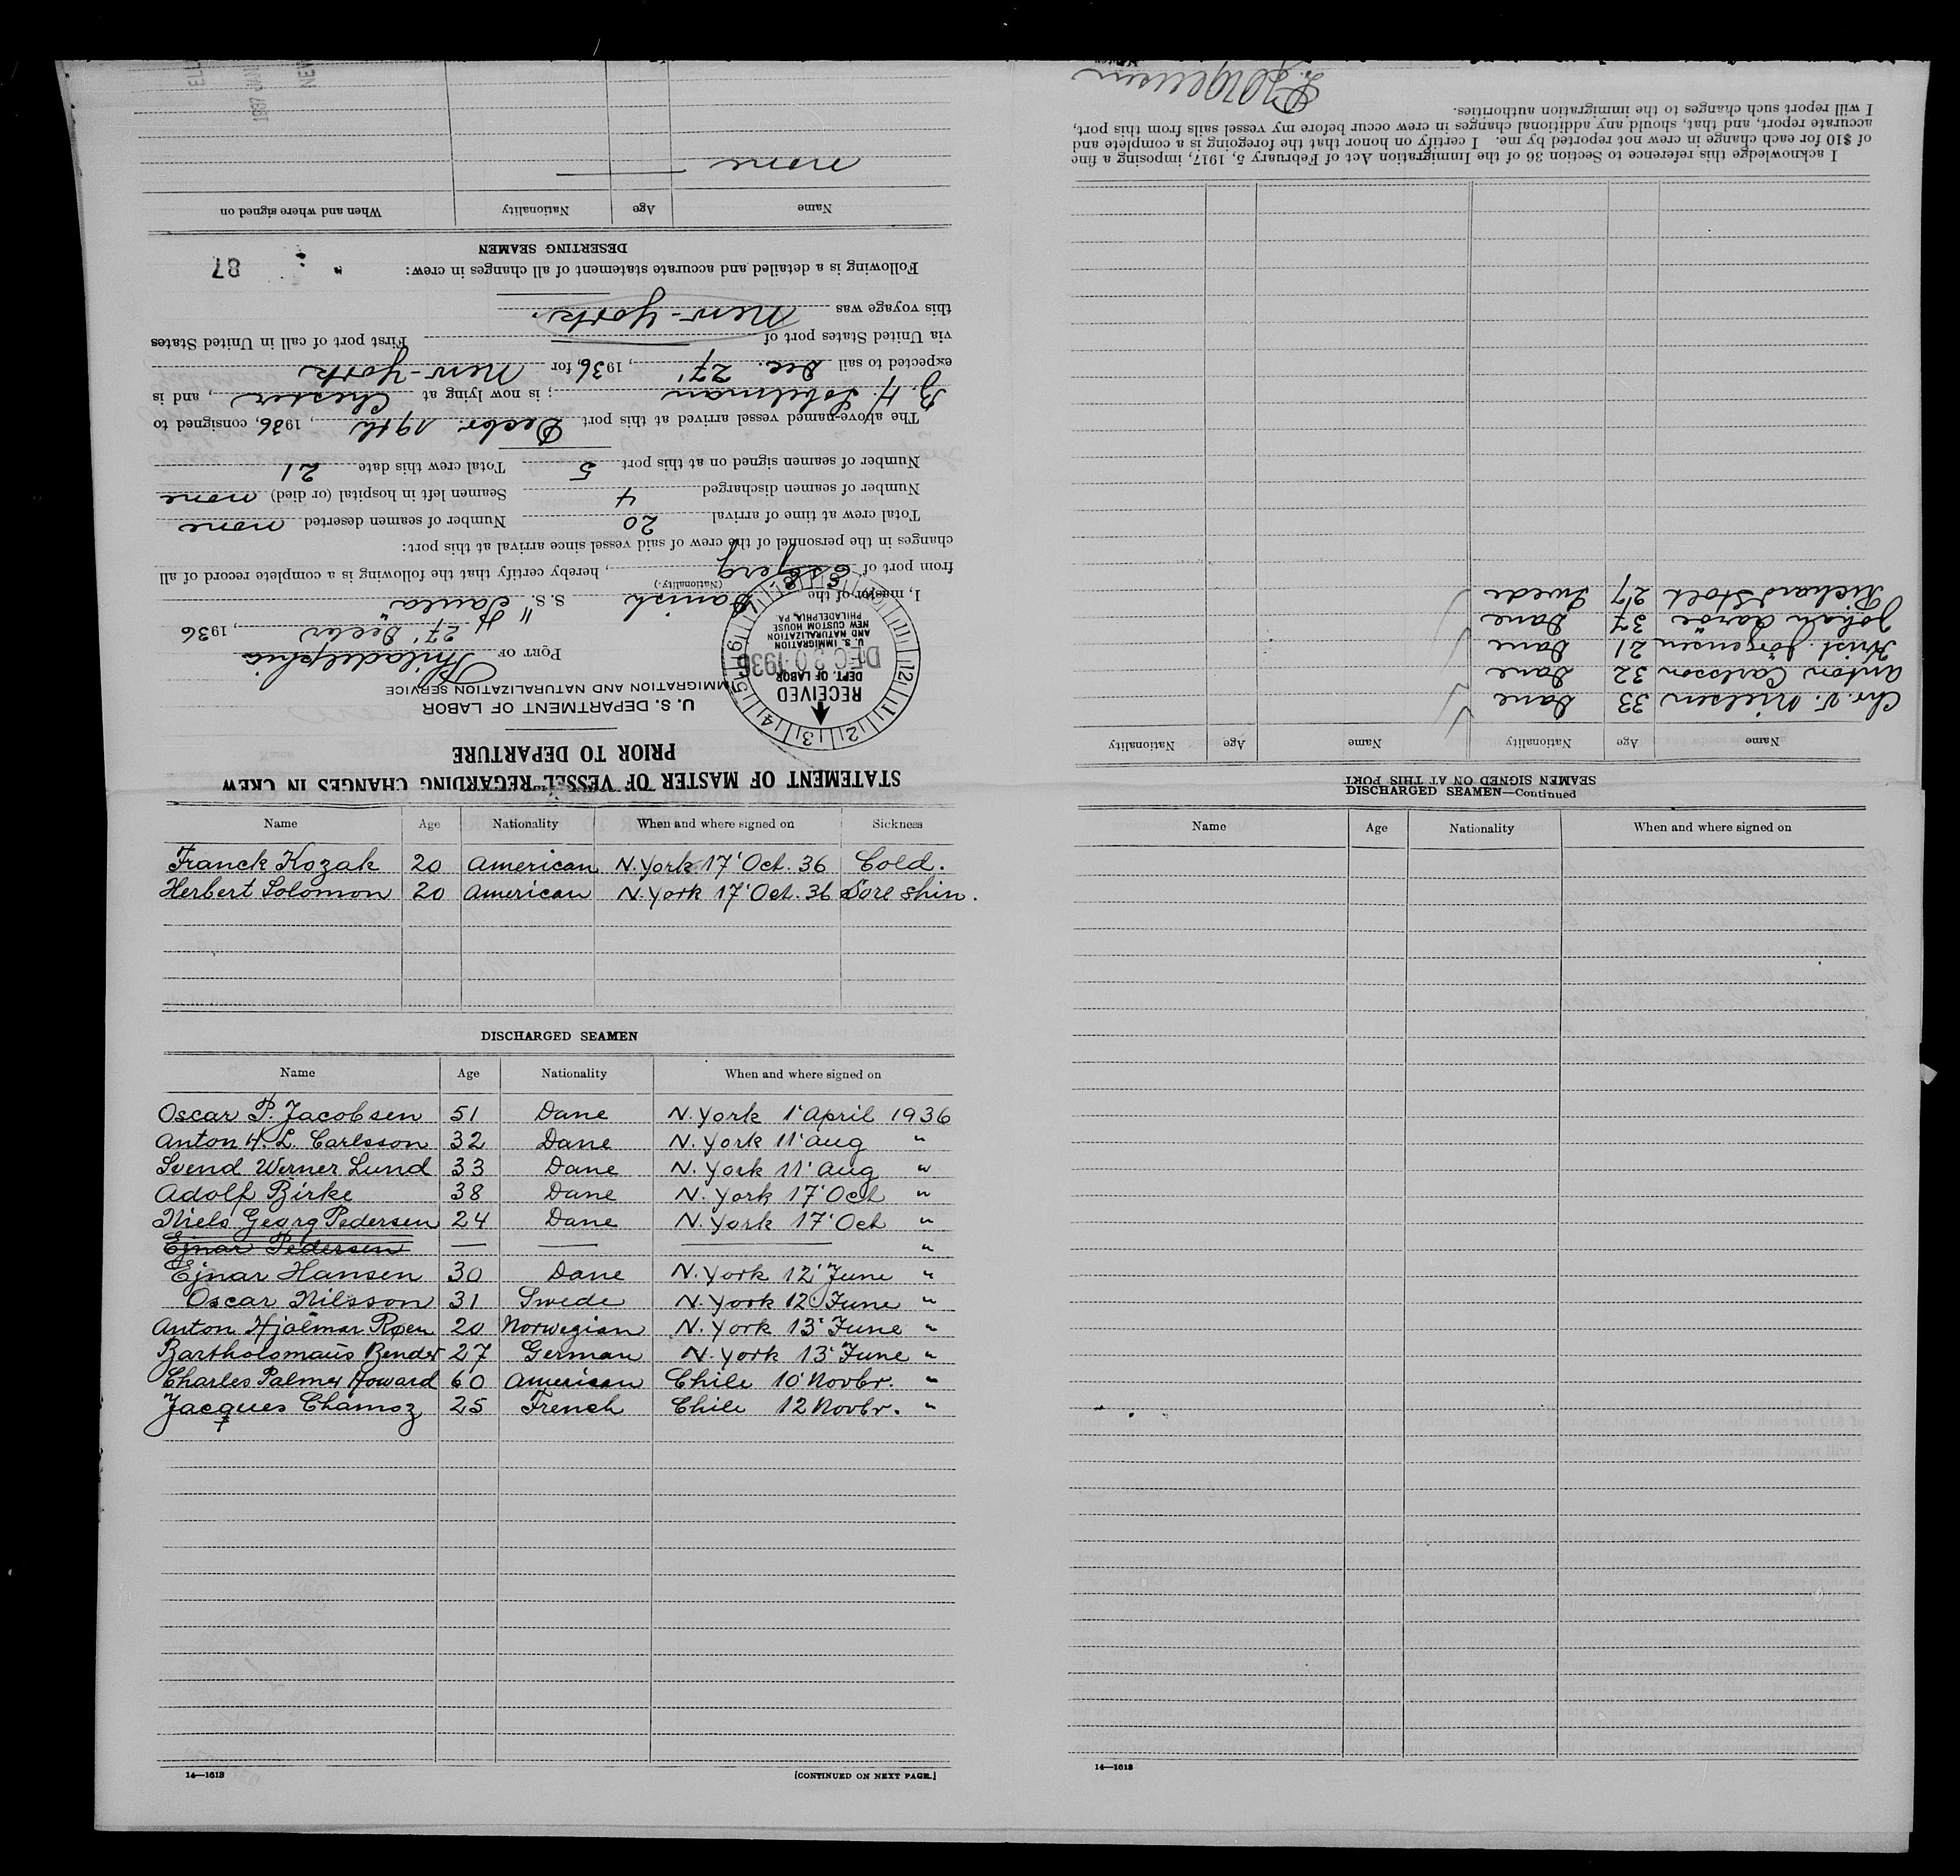 Name Age Nationality When and where signed on Sickness
Franck Kozak 20 American N.York 17' Oct. 36 Cold.
Herbert Solomon 20 American N.York 17' Oct. 36 Sore shin.
DISCHARGED SEAMEN
Name Age Nationality When and where signed on
Oscar P. Jacobsen 51 Dane N.York 1' April 1936
Anton H. L. Carlsson 32 Dane N.York 11' Aug "
Svend Werner Lund 33 Dane N.York 11' Aug "
Adolf Birke 38 Dane N.York 17' Oct "
Niels Georg Pedersen 24 Dane N.York 17' Oct "
Ejnar Pedersen — — — "
Ejnar Hansen 30 Dane N.York 12' June "
Oscar Nilsson 31 Swede N.York 12' June "
Anton Hjalmar Røen 20 Norwegian N.York 13' June "
Bartholomaüs Bender 27 German N.York 13' June "
Charles Palmer Howard 60 American Chile 10' Novbr. "
Jacques Chamoz 25 French Chile 12 Novbr. "
14—1613
[CONTINUED ON NEXT PAGE.]
DISCHARGED SEAMEN—Continued
Name Age Nationality When and where signed on
14—1613
STATEMENT OF MASTER OF VESSEL REGARDING CHANGES IN CREW
PRIOR TO DEPARTURE
U. S. DEPARTMENT OF LABOR
IMMIGRATION AND NATURALIZATION SERVICE
RECEIVED
DEPT. OF LABOR
DEC 30 1936
U. S. IMMIGRATION
AND NATURALIZATION
NEW CUSTOM HOUSE
PHILADELPHIA, PA.
PORT OF Philadelphia
27' Decbr, 1936
I, master of the Danish S.S.
(Nationality.)
from port of Esbjerg, hereby certify that the following is a complete record of all
changes in the personnel of the crew of said vessel since arrival at this port:
Total crew at time of arrival 20 Number of seamen deserted none
Number of seamen discharged 4 Seamen left in hospital (or died) none
Number of seamen signed on at this port 5 Total crew this date 21
The above-named vessel arrived at this port Decbr. 19th, 1936, consigned to
B. H. Sobelman; is now lying at Chester, and is
expected to sail Dec. 27', 1936, for New-York
via United States port of First port of call in United States
this voyage was New-York.
Following is a detailed and accurate statement of all changes in crew: 87
DESERTING SEAMEN
Name Age Nationality When and where signed on
none
SEAMEN SIGNED ON AT THIS PORT
Name Age Nationality Name Age Nationality
Chr. V. Nielsen 33 Dane
Anton Carlsson 32 Dane
Krist. Jörgensen 21 Dane
Johan Aaröe 37 Dane
Richard Stoll 27 Swede
I acknowledge this reference to Section 36 of the Immigration Act of February 5, 1917, imposing a fine
of $10 for each change in crew not reported by me. I certify on honor that the foregoing is a complete and
accurate report, and that, should any additional changes in crew occur before my vessel sails from this port,
I will report such changes to the immigration authorities.